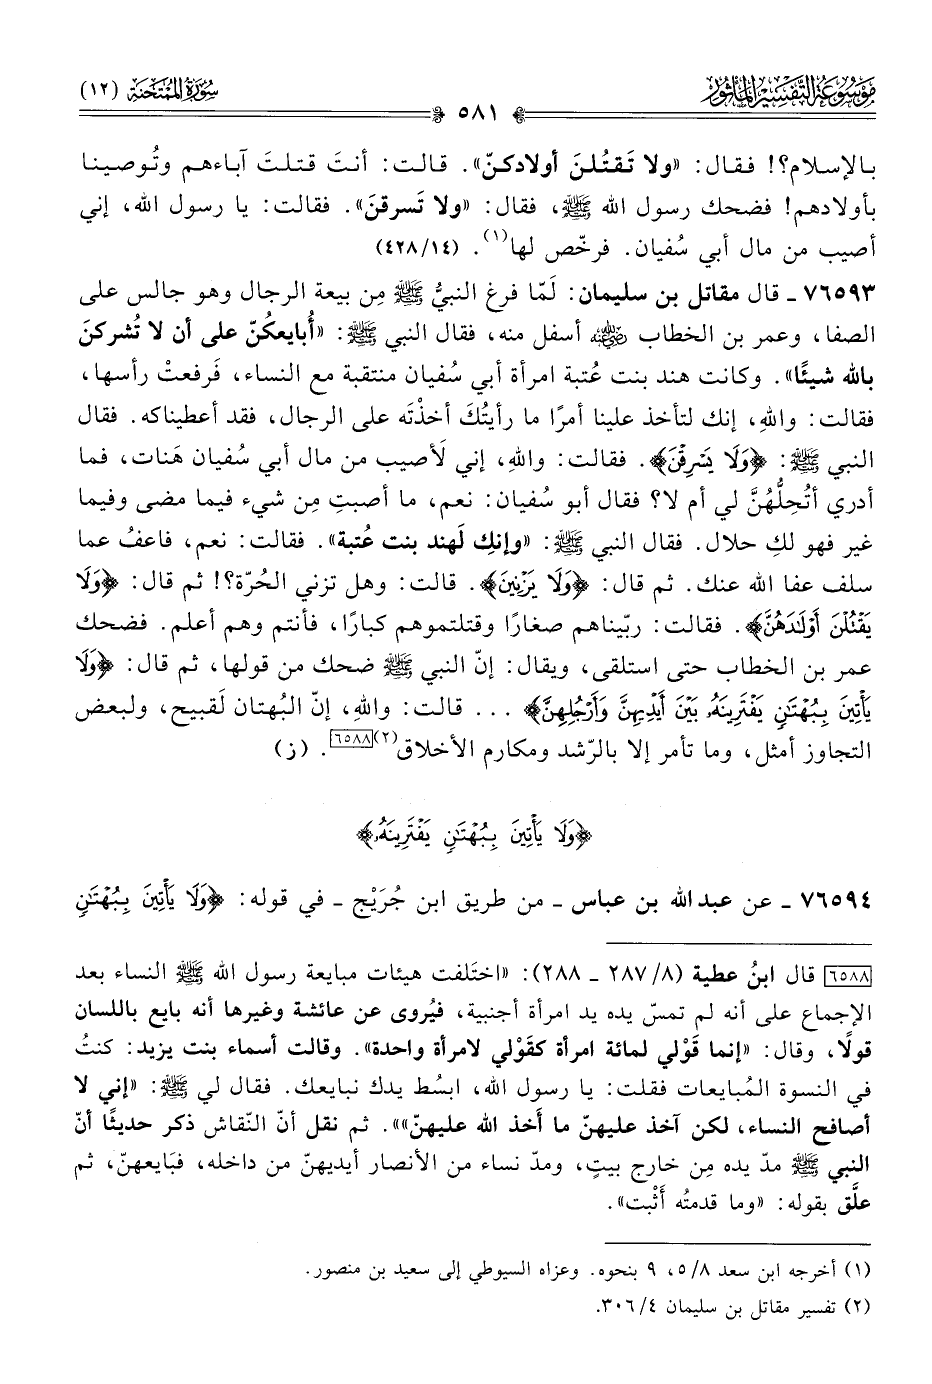 موسوعة التفسير المأثور
سورة الممتحنة (١٢)
٥٨١
بالإسلام؟! فقال: «ولا تَقتُلنَ أولادكنّ». قالت: أنتَ قتلتَ آباءهم وتُوصينا
بأولادهم! فضحك رسول الله ﷺ، فقال: «ولا تَسرقنَ». فقالت: يا رسول الله، إني
أصيب من مال أبي سُفيان. فرخّص لها(١). (٤٢٨/١٤)
٧٦٥٩٣ ـ قال مقاتل بن سليمان: لَمّا فرغ النبيُّ ﷺ مِن بيعة الرجال وهو جالس على
الصفا، وعمر بن الخطاب رضي الله عنه أسفل منه، فقال النبي ﷺ: «أُبايعكُنّ على أن لا تُشركنَ
بالله شيئًا». وكانت هند بنت عُتبة امرأة أبي سُفيان منتقبة مع النساء، فَرفعتْ رأسها،
فقالت: واللهِ، إنك لتأخذ علينا أمرًا ما رأيتُكَ أخذْتَه على الرجال، فقد أعطيناكه. فقال
النبي ﷺ: ﴿وَلَا يَسْرِقْنَ﴾. فقالت: واللهِ، إني لَأصيب من مال أبي سُفيان هَنات، فما
أدري أتُحِلُّهُنَّ لي أم لا؟ فقال أبو سُفيان: نعم، ما أصبتِ مِن شيء فيما مضى وفيما
غير فهو لكِ حلال. فقال النبي ﷺ: «وإنكِ لَهند بنت عُتبة». فقالت: نعم، فاعفُ عما
سلف عفا الله عنك. ثم قال: ﴿وَلَا يَزْنِينَ﴾. قالت: وهل تزني الحُرّة؟! ثم قال: ﴿وَلَا
يَقْتُلْنَ أَوْلَٰدَهُنَّ﴾. فقالت: ربّيناهم صغارًا وقتلتموهم كبارًا، فأنتم وهم أعلم. فضحك
عمر بن الخطاب حتى استلقى، ويقال: إنّ النبي ﷺ ضحك من قولها، ثم قال: ﴿وَلَا
يَأْتِينَ بِبُهْتَٰنٍ يَفْتَرِينَهُۥ بَيْنَ أَيْدِيهِنَّ وَأَرْجُلِهِنَّ﴾ ... قالت: واللهِ، إنّ البُهتان لَقبيح، ولبعض
التجاوز أمثل، وما تأمر إلا بالرّشد ومكارم الأخلاق(٢)[٦٥٨٨]. (ز)
﴿وَلَا يَأْتِينَ بِبُهْتَٰنٍ يَفْتَرِينَهُۥ﴾
٧٦٥٩٤ ـ عن عبد الله بن عباس ـ من طريق ابن جُرَيْج ـ في قوله: ﴿وَلَا يَأْتِينَ بِبُهْتَٰنٍ
[٦٥٨٨] قال ابنُ عطية (٢٨٧/٨ ـ ٢٨٨): «اختَلفت هيئات مبايعة رسول الله ﷺ النساء بعد
الإجماع على أنه لم تمسّ يده يد امرأة أجنبية، فيُروى عن عائشة وغيرها أنه بايع باللسان
قولًا، وقال: «إنما قَوْلي لمائة امرأة كقَوْلي لامرأة واحدة». وقالت أسماء بنت يزيد: كنتُ
في النسوة المُبايعات فقلت: يا رسول الله، ابسُط يدك نبايعك. فقال لي ﷺ: «إني لا
أصافح النساء، لكن آخذ عليهنّ ما أَخذ الله عليهنّ»». ثم نقل أنّ النّقاش ذكر حديثًا أنّ
النبي ﷺ مدّ يده مِن خارج بيتٍ، ومدّ نساء من الأنصار أيديهنّ من داخله، فبَايعهنّ، ثم
علَّق بقوله: «وما قدمتُه أَثْبت».
(١) أخرجه ابن سعد ٥/٨، ٩ بنحوه. وعزاه السيوطي إلى سعيد بن منصور.
(٢) تفسير مقاتل بن سليمان ٣٠٦/٤.